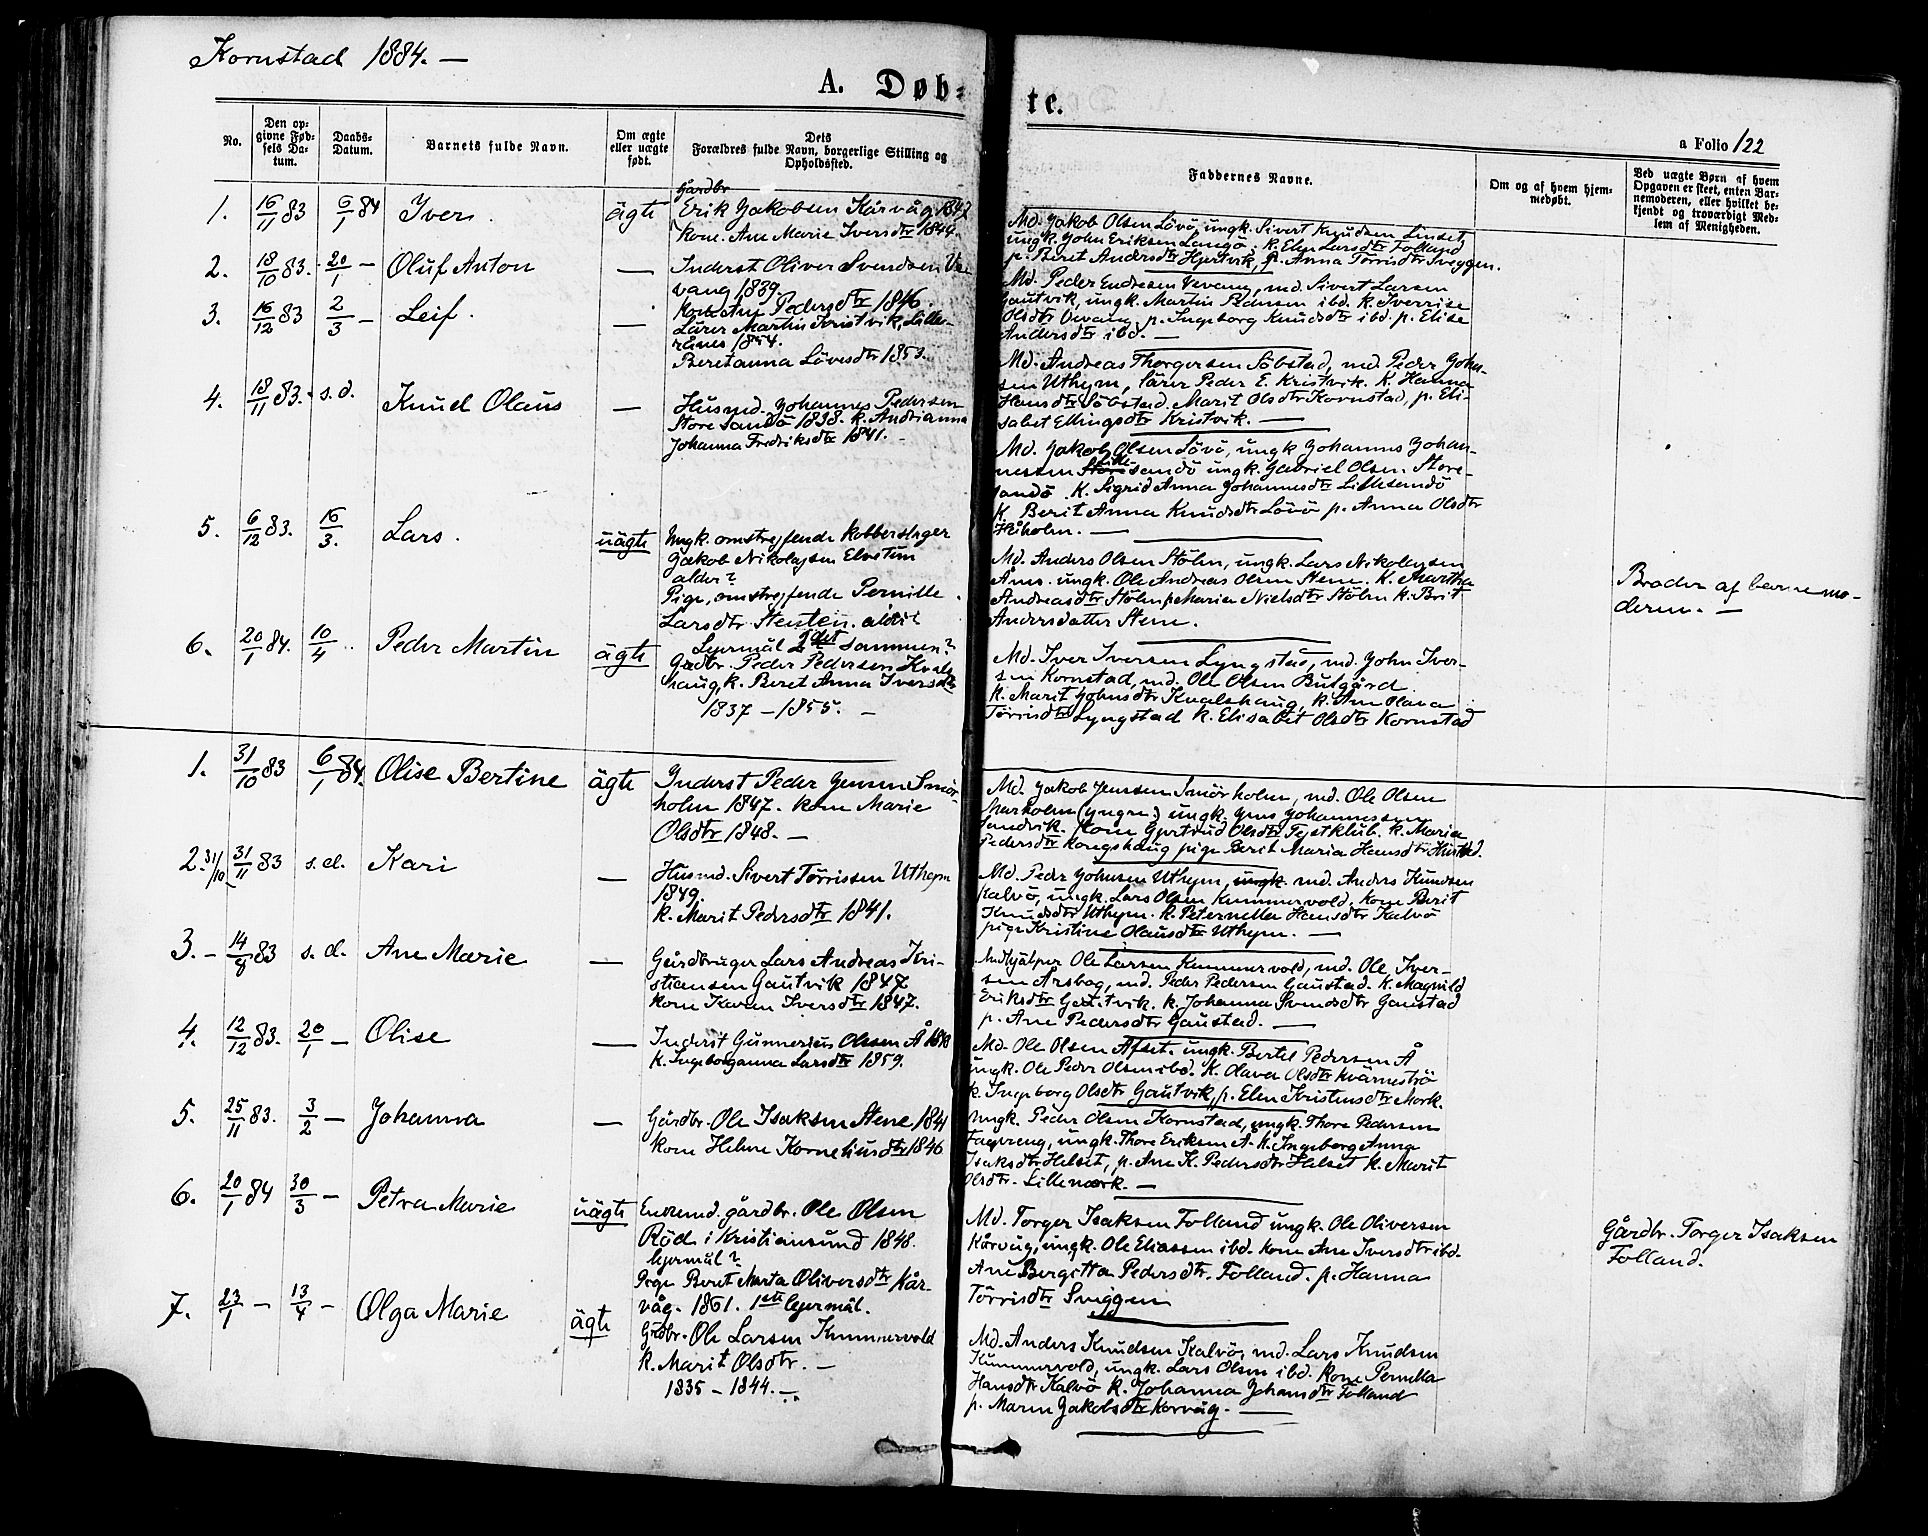 Kornstad 1884. —
A. Døb=
te.
a Folio 122
No.
Den op-
givne Fød-
sels Da-
tum.
Daabs-
Datum.
Barnets fulde Navn.
Om ægte
eller uægte
født.
Dets
Forældres fulde Navn, borgerlige Stilling og
Opholdssted.
Faddernes Navne.
Om og af hvem hjem-
medøbt.
Ved uægte Børn af hvem
Opgaven er skeet, enten Bar-
nemoderen, eller hvilket be-
kjendt og troværdigt Med-
lem af Menigheden.
1. 16/11 83 6/1 84 Iver. ägte
Gårdbr
Erik Jakobsen Kårvåg 1847
kone. Ane Marie Iversdtr 1844.
Md. Jakob Olsen Lövö, ungk. Sivert Knudsen Linset
ungk. John Eriksen Langö. k. Elen Larsdtr Folland
p. Beret Andersdtr Hjertvik, p. Anna Törrisdtr Sveggen.
2. 18/10 83. 20/1 — Oluf Anton —
Inderst Oliver Svendsen Ve-
vang 1839.
kone Ane Pedersdtr 1846.
Md. Peder Endresen Vevang, md. Sivert Larsen
Gautvik, ungk. Martin Pedersen ibd. k. Iverrise
Olsdtr Vevang, p. Ingeborg Knudsdtr ibd. p. Elise
Andersdtr ibd. —
3. 16/12 83 2/3 — Leif. —
Lärer Martin Kristvik, Lille-
rånes 1854.
Beretanna Lövesdtr 1853.
Md. Andreas Thorgersen Söbstad, md. Peder John-
sen Uthejm, lärer Peder E. Kristvik. K. Hanna
Hansdtr Söbstad. Marit Olsdtr Kornstad, p. Eli-
sabet Ellingsdtr Kristvik. —
4. 18/11 83. s. d. Knud Olaus —
Husmd. Johannes Pedersen
Store Sandö 1838. k. Andrianna
Johanna Fredriksdtr 1841. —
Md. Jakob Olsen Lövö, ungk Johannes Johan-
nessen Lille sandö ungk. Gabriel Olsen. Store-
sandö. K. Sigrid Anna Johannesdtr Lillesandö
K. Berit Anna Knudsdtr Lövö p. Anna Olsdtr
Håholm. —
5. 6/12 83. 16/3. Lars. uägte
Ungk. omstrejfende kobberslager
Jakob Nikolajsen Elvetun
alder?
Pige, omstrejfende Pernille
Larsdtr Stensten. alder
Lejermål 1det sammen?
Md. Anders Olsen Stöln, ungk. Lars Nikolaysen
Ånes. ungk. Ole Andreas Olsen Stene. K. Martha
Andreasdtr Stöln p. Maria Nielsdtr Stöln k. Brit
Andersdatter Stene.
Broder af barnemo-
deren. —
6. 20/1 84. 10/4 .. Peder Martin ägte
Grdbr. Peder Pedersen Kvals-
haug, k. Beret Anna Iversdtr
1837 — 1855. —
Md. Iver Iversen Lyngstad, md. John Iver-
sen Kornstad, md. Ole Olsen Butgård.
k. Marit Johnsdtr Kvalshaug, k. Ane Olava
Törrisdtr Lyngstad k. Elisabet Olsdtr Kornstad
1. 31/10 83 6/1 84. Olise Bertine ägte
Inderst Peder Jensen Smör-
holm 1847. kone Marie
Olsdtr 1848. —
Md. Jakob Jenssen Smörholm, md. Ole Olsen
Marholm (yngre) ungk. Jens Johannessen
Sandvik. kone Gjertrud Olsdtr Tejstklub. k. Maria
Pedersdtr Kongshaug pige Berit Maria Hansdtr Hustad.
2. 31/10 31/11 83 s. d. Kari —
Husmd. Sivert Törrissen Uthejm
1849.
k. Marit Pedersdtr 1841.
Md. Peder Johnsen Uthejm, ungk. md. Anders Knudsen
Kalvö, ungk. Lars Olsen Kummervold. kone Berit
Knudsdtr Uthejm. k. Peternella Hansdtr Kalvö
pige Kristine Olausdtr Uthejm. —
3. — 14/8 83 s. d. Ane Marie —
Gårdbruger Lars Andreas Kri-
stiansen Gautvik 1847
kone Karen Iversdtr 1847.
Medhjälper Ole Larsen Kummervold, md. Ole Iver-
sen Årsbog, md. Peder Pedersen Gaustad. K. Magnild
Eriksdtr Gautvik. k. Johanna Svendsdtr Gaustad
p. Ane Pedersdtr Gaustad. —
4. 12/12 83. 20/1 — Olise —
Inderst Gunnerius Olesen Å
k. Ingeborganna Larsdtr 1859.
Md. Ole Olsen Afset. ungk. Bertel Pedersen Å
ungk. Ole Peder Olsen ibd. K. Olava Olsdtr Kvärneströ
k. Ingeborg Olsdtr Gautvik, p. Elen Kristensdtr Mork.
5. 25/11 83. 3/2 — Johanna —
Gårdbr. Ole Isaksen Stene 1841
kone Helene Korneliusdtr 1846
ungk. Peder Olsen Kornstad, ungk. Thore Pedersen
Fagereng, ungk. Thore Eriksen Å. k. Ingeborg Anna
Isaksdtr Helset, p. Ane K. Pedersdtr Helset k. Marit
Olsdtr. Lillemork. —
6. 20/1 84 30/3 — Petra Marie uägte
Enkemd. gårdbr. Ole Olsen
Röd i Kristiansund 1848.
lejermål?
Pige Beret Marta Oliversdtr Kår-
våg. 1861. 1ste lejermål.
Md. Torger Isaksen Folland ungk. Ole Oliversen
Kårvåg, ungk. Ole Eliassen ibd. kone Ane Iversdtr ibd.
Ane Bergitta Pedersdtr. Folland. p. Hanna
Törrisdtr Sveggen
Gårdbr. Torger Isaksen
Folland.
7. 23/1 — 13/4 — Olga Marie ägte
Grdbr. Ole Larsen Kummervold
k. Marit Olsdtr. —
1835 — 1844. —
Md. Anders Knudsen Kalvö, md. Lars Knudsen
Kummervold, ungk. Lars Olsen ibd. kone Pernella
Hansdtr Kalvö k. Johanna Johansdtr Folland
p. Maren Jakobsdtr Karvåg. —